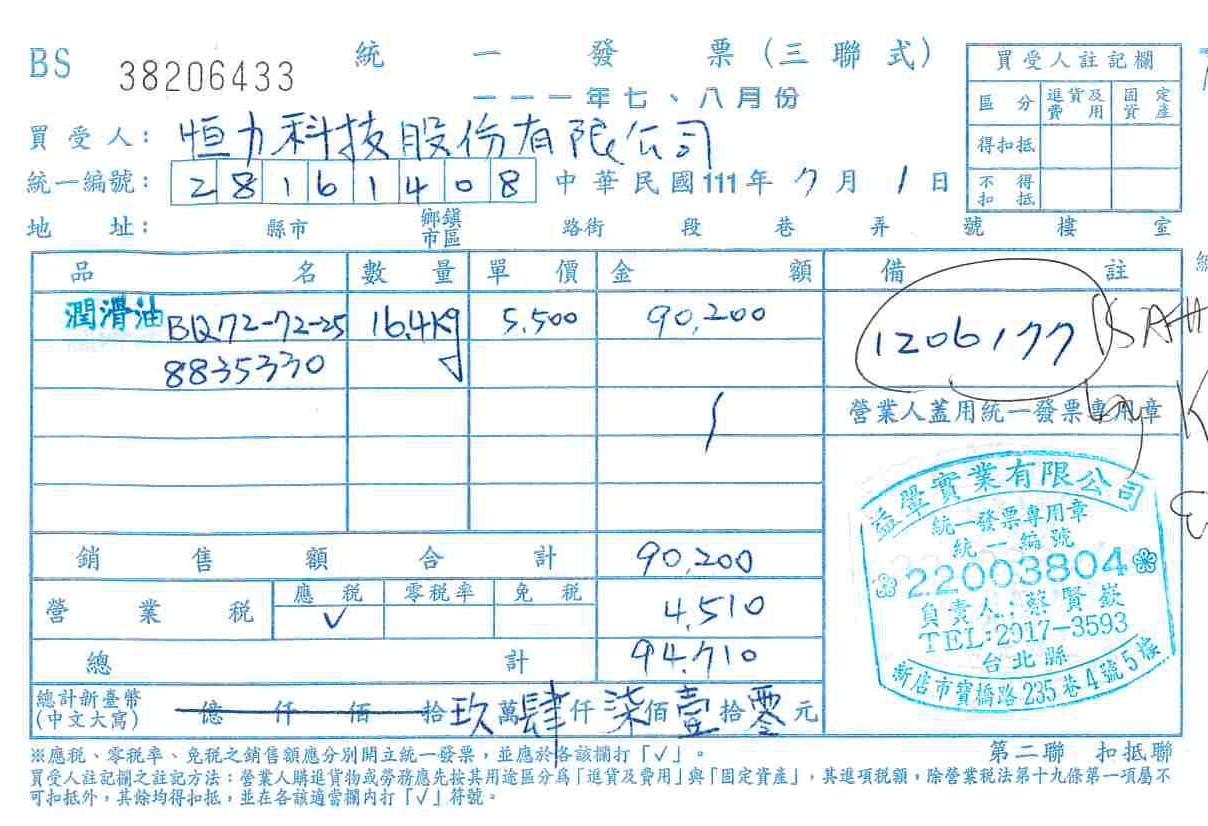 BS 38206433 統一發票(三聯式)
一一一年七、八月份
買受人註記欄
區分 進貨及費用 固定資產
得扣抵
不得扣抵
買受人: 恒力科技股份有限公司
統一編號: 28161408 中華民國111年7月1日
地址: 縣市 鄉鎮市區 路街 段 巷 弄 號 樓 室
品名 數量 單價 金額 備註
潤滑油 BQ72-72-25 16.4Kg 5,500 90,200
8835330
1206177
營業人蓋用統一發票專用章
銷售額合計 90,200
營業稅 應稅 零稅率 免稅 4,510
√
總計 94,710
總計新臺幣(中文大寫) 億仟佰拾玖萬肆仟柒佰壹拾零元
實業有限公司
統一發票專用章
統一編號
22003804
負責人:蔡賢嶔
TEL:2917-3593
台北縣
新店市寶橋路235巷4號5樓
※應稅、零稅率、免稅之銷售額應分別開立統一發票,並應於各該欄打「√」。
第二聯 扣抵聯
買受人註記欄之註記方法:營業人購進貨物或勞務應先按其用途區分為「進貨及費用」與「固定資產」,其進項稅額,除營業稅法第十九條第一項屬不
可扣抵外,其餘均得扣抵,並在各該適當欄內打「√」符號。